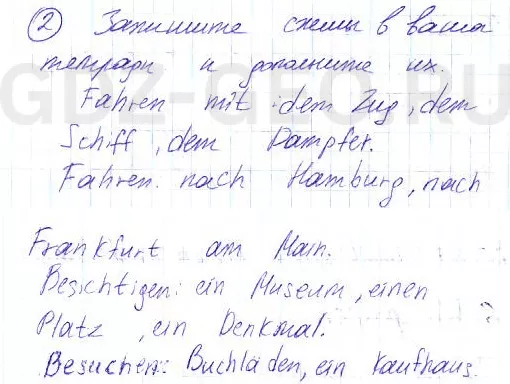 ② Запишите схемы в ваши
тетради и дополните их.
Fahren mit dem Zug, dem
Schiff, dem Dampfer.
Fahren nach Hamburg, nach
Frankfurt am Main.
Besichtigen: ein Museum, einen
Platz, ein Denkmal.
Besuchen: Buchläden, ein Kaufhaus.